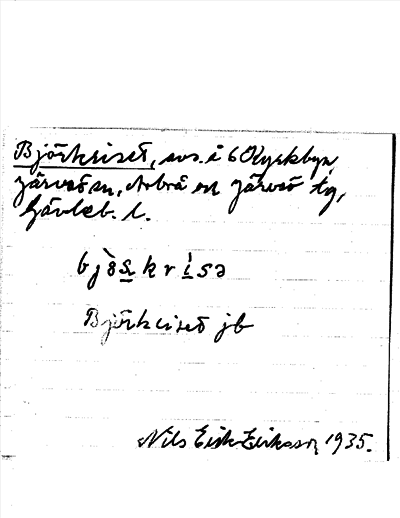 Björkriset, avs. i 6 Kyrkbyn,
Järvsö sn, Arbrå och Järvsö tg,
Gävleb. l.
bjöskrisə
Björkriset jb
Nils Erik Eriksson 1935.